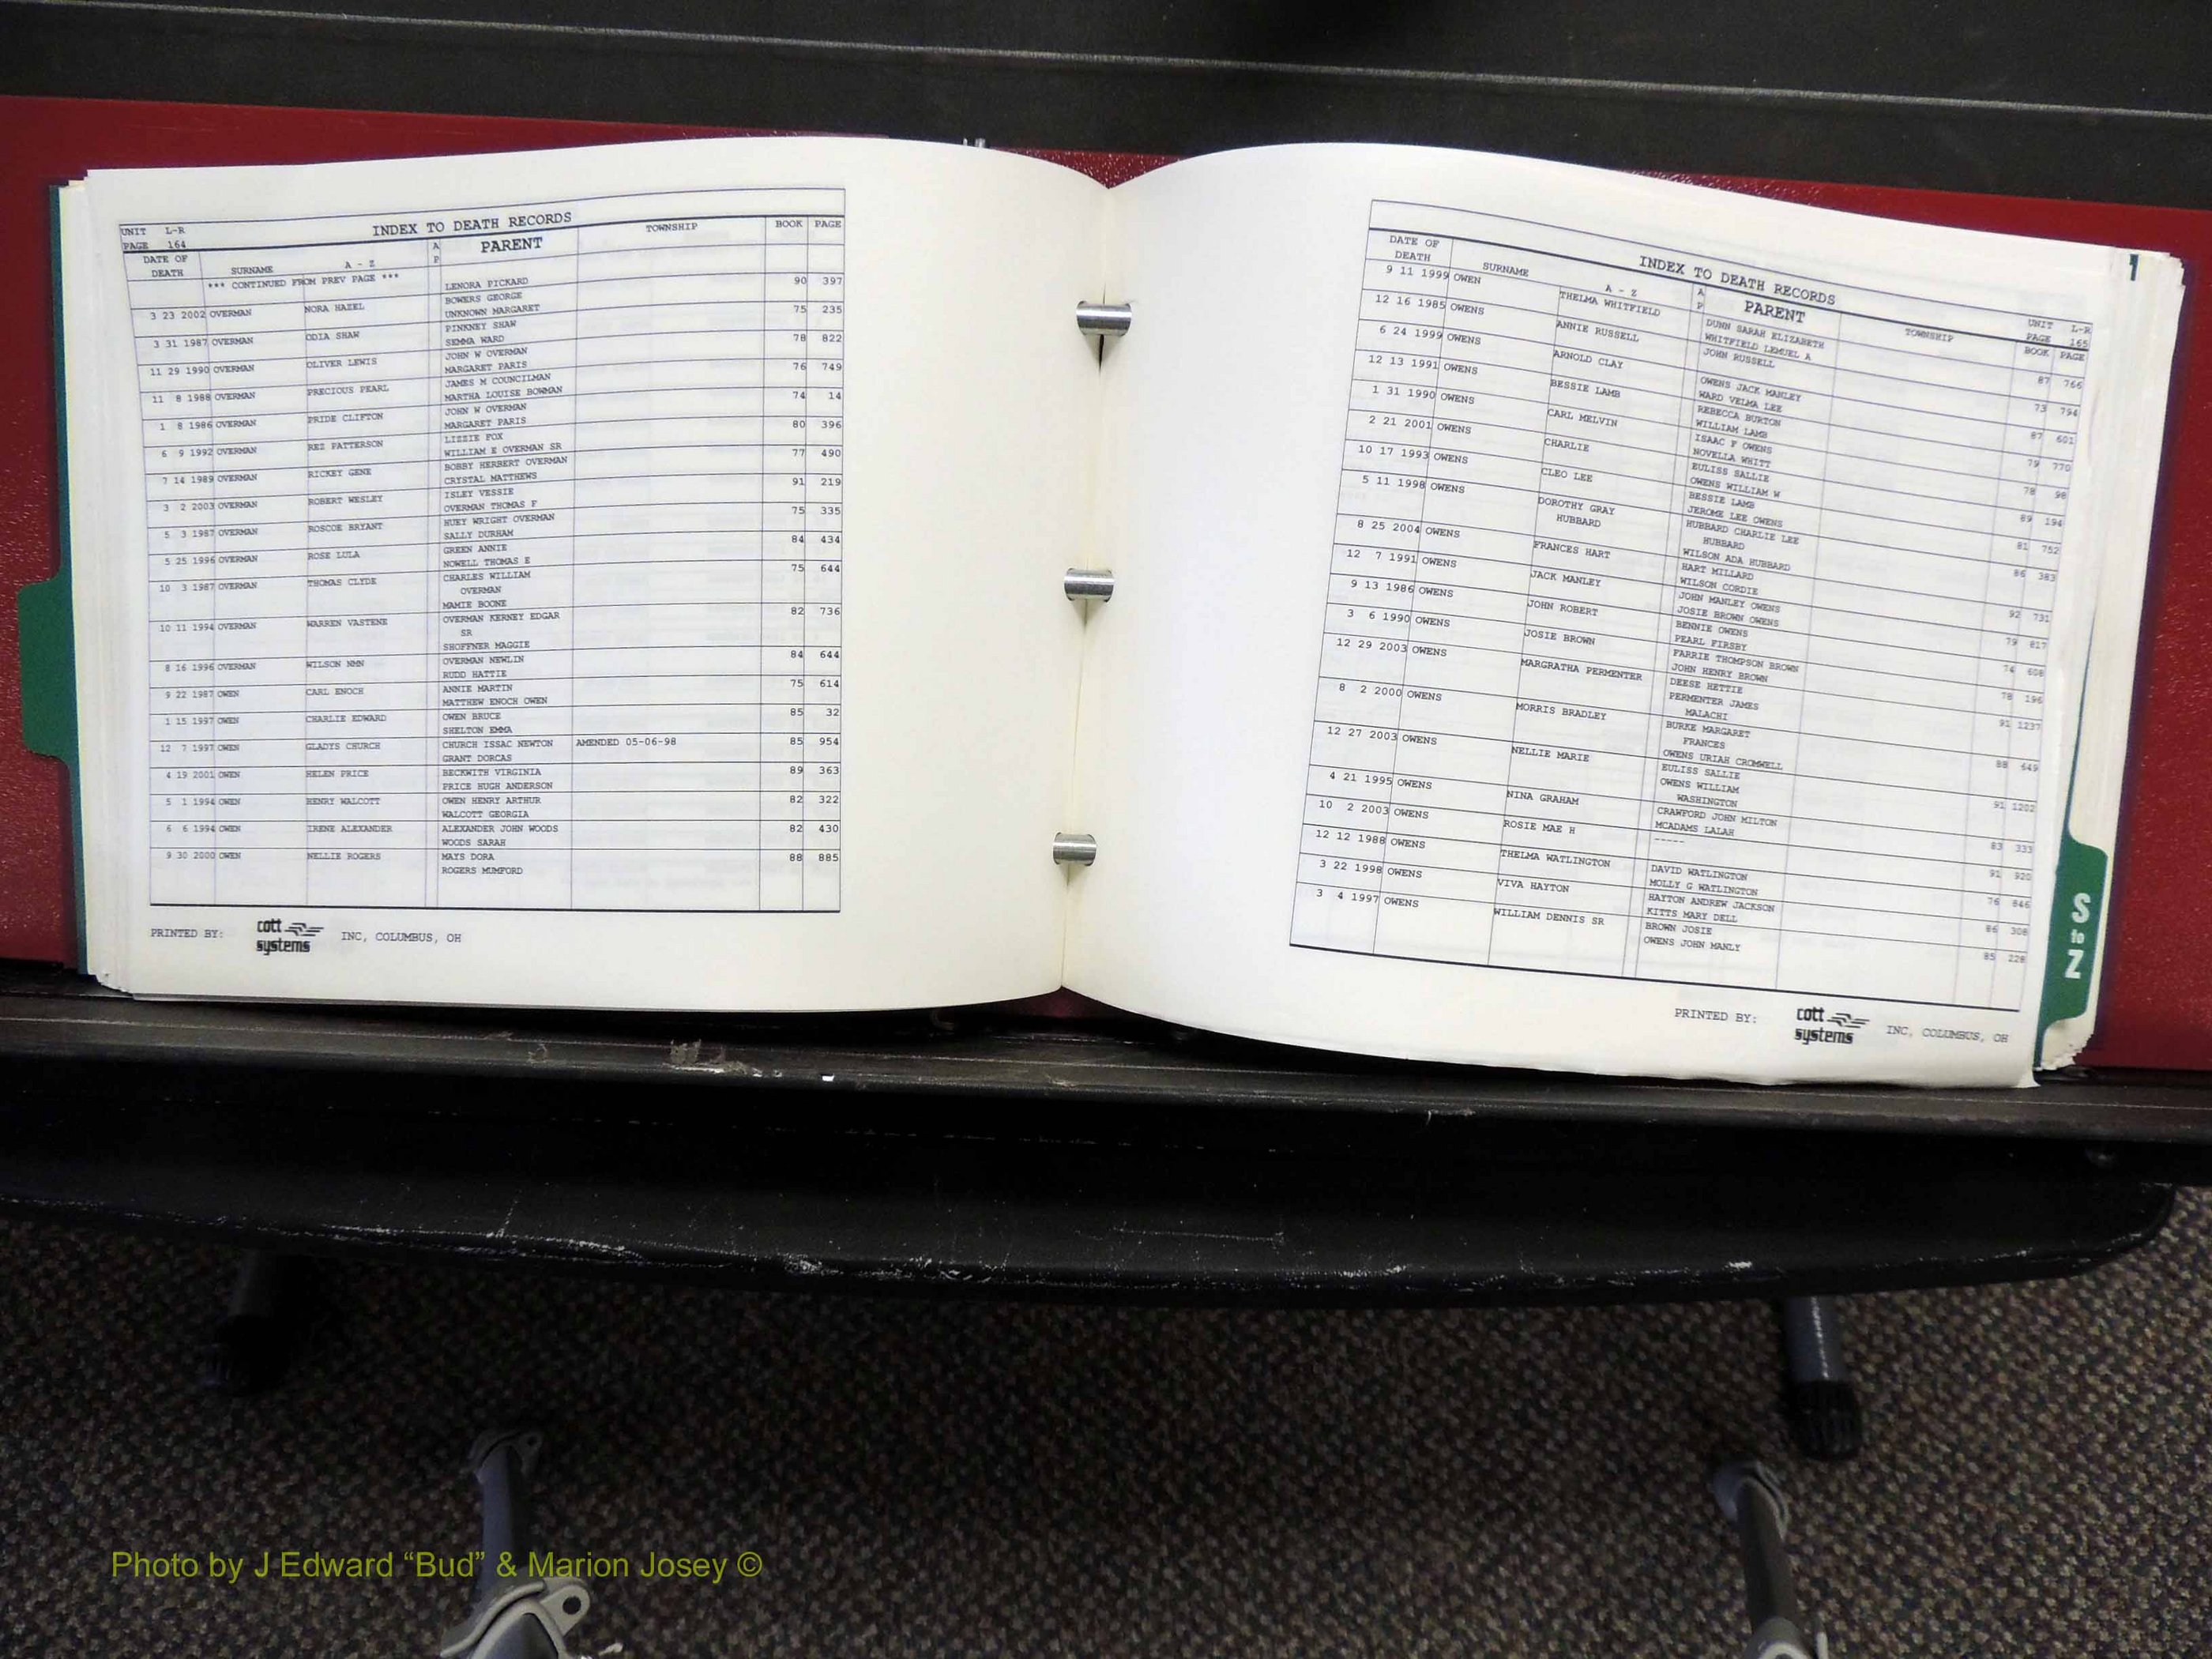 UNIT L-R INDEX TO DEATH RECORDS TOWNSHIP BOOK PAGE
PAGE 164 A P PARENT
DATE OF DEATH SURNAME A - Z
*** CONTINUED FROM PREV PAGE *** LENORA PICKARD
3 23 2002 OVERMAN NORA HAZEL BOWERS GEORGE 90 397
UNKNOWN MARGARET
3 31 1987 OVERMAN ODIA SHAW PINKNEY SHAW 75 235
SEMMA WARD
11 29 1990 OVERMAN OLIVER LEWIS JOHN W OVERMAN 78 822
MARGARET PARIS
11 8 1988 OVERMAN PRECIOUS PEARL JAMES M COUNCILMAN 76 749
MARTHA LOUISE BOWMAN
1 8 1986 OVERMAN PRIDE CLIFTON JOHN W OVERMAN 74 14
MARGARET PARIS
6 9 1992 OVERMAN REZ PATTERSON LIZZIE FOX 80 396
WILLIAM E OVERMAN SR
7 14 1989 OVERMAN RICKEY GENE BOBBY HERBERT OVERMAN 77 490
CRYSTAL MATTHEWS
3 2 2003 OVERMAN ROBERT WESLEY ISLEY VESSIE 91 219
OVERMAN THOMAS F
5 3 1987 OVERMAN ROSCOE BRYANT HUEY WRIGHT OVERMAN 75 335
SALLY DURHAM
5 25 1996 OVERMAN ROSE LULA GREEN ANNIE 84 434
NOWELL THOMAS E
10 3 1987 OVERMAN THOMAS CLYDE CHARLES WILLIAM 75 644
OVERMAN
MAMIE BOONE
10 11 1994 OVERMAN WARREN VASTENE OVERMAN KERNEY EDGAR 82 736
SR
SHOFFNER MAGGIE
8 16 1996 OVERMAN WILSON NMN OVERMAN NEWLIN 84 644
RUDD HATTIE
9 22 1987 OWEN CARL ENOCH ANNIE MARTIN 75 614
MATTHEW ENOCH OWEN
1 15 1997 OWEN CHARLIE EDWARD OWEN BRUCE 85 32
SHELTON EMMA
12 7 1997 OWEN GLADYS CHURCH CHURCH ISSAC NEWTON AMENDED 05-06-98 85 954
GRANT DORCAS
4 19 2001 OWEN HELEN PRICE BECKWITH VIRGINIA 89 363
PRICE HUGH ANDERSON
5 1 1994 OWEN HENRY WALCOTT OWEN HENRY ARTHUR 82 322
WALCOTT GEORGIA
6 6 1994 OWEN IRENE ALEXANDER ALEXANDER JOHN WOODS 82 430
WOODS SARAH
9 30 2000 OWEN NELLIE ROGERS MAYS DORA 88 885
ROGERS MUMFORD
PRINTED BY: cott systems INC, COLUMBUS, OH
INDEX TO DEATH RECORDS UNIT L-R
PAGE 165
DATE OF DEATH SURNAME A - Z A P PARENT TOWNSHIP BOOK PAGE
9 11 1999 OWEN THELMA WHITFIELD DUNN SARAH ELIZABETH 87 766
WHITFIELD LEMUEL A
12 16 1985 OWENS ANNIE RUSSELL JOHN RUSSELL 73 794
6 24 1999 OWENS ARNOLD CLAY OWENS JACK MANLEY 87 601
WARD VELMA LEE
12 13 1991 OWENS BESSIE LAMB REBECCA BURTON 79 770
WILLIAM LAMB
1 31 1990 OWENS CARL MELVIN ISAAC F OWENS 78 98
NOVELLA WHITT
2 21 2001 OWENS CHARLIE EULISS SALLIE 89 194
OWENS WILLIAM W
10 17 1993 OWENS CLEO LEE BESSIE LAMB 81 752
JEROME LEE OWENS
5 11 1998 OWENS DOROTHY GRAY HUBBARD CHARLIE LEE 86 383
HUBBARD HUBBARD
WILSON ADA HUBBARD
8 25 2004 OWENS FRANCES HART HART MILLARD 92 731
WILSON CORDIE
12 7 1991 OWENS JACK MANLEY JOHN MANLEY OWENS 79 817
JOSIE BROWN OWENS
9 13 1986 OWENS JOHN ROBERT BENNIE OWENS 74 608
PEARL FIRSBY
3 6 1990 OWENS JOSIE BROWN FARRIE THOMPSON BROWN 78 196
JOHN HENRY BROWN
12 29 2003 OWENS MARGRATHA PERMENTER DEESE HETTIE 91 1237
PERMENTER JAMES
MALACHI
8 2 2000 OWENS MORRIS BRADLEY BURKE MARGARET 88 649
FRANCES
OWENS URIAH CROMWELL
12 27 2003 OWENS NELLIE MARIE EULISS SALLIE 91 1202
OWENS WILLIAM
WASHINGTON
4 21 1995 OWENS NINA GRAHAM CRAWFORD JOHN MILTON 83 333
MCADAMS LALAH
10 2 2003 OWENS ROSIE MAE H ----- 91 920
12 12 1988 OWENS THELMA WATLINGTON DAVID WATLINGTON 76 846
MOLLY G WATLINGTON
3 22 1998 OWENS VIVA HAYTON HAYTON ANDREW JACKSON 86 308
KITTS MARY DELL
3 4 1997 OWENS WILLIAM DENNIS SR BROWN JOSIE 85 228
OWENS JOHN MANLY
PRINTED BY: cott systems INC, COLUMBUS, OH
S to Z
Photo by J Edward “Bud” & Marion Josey ©